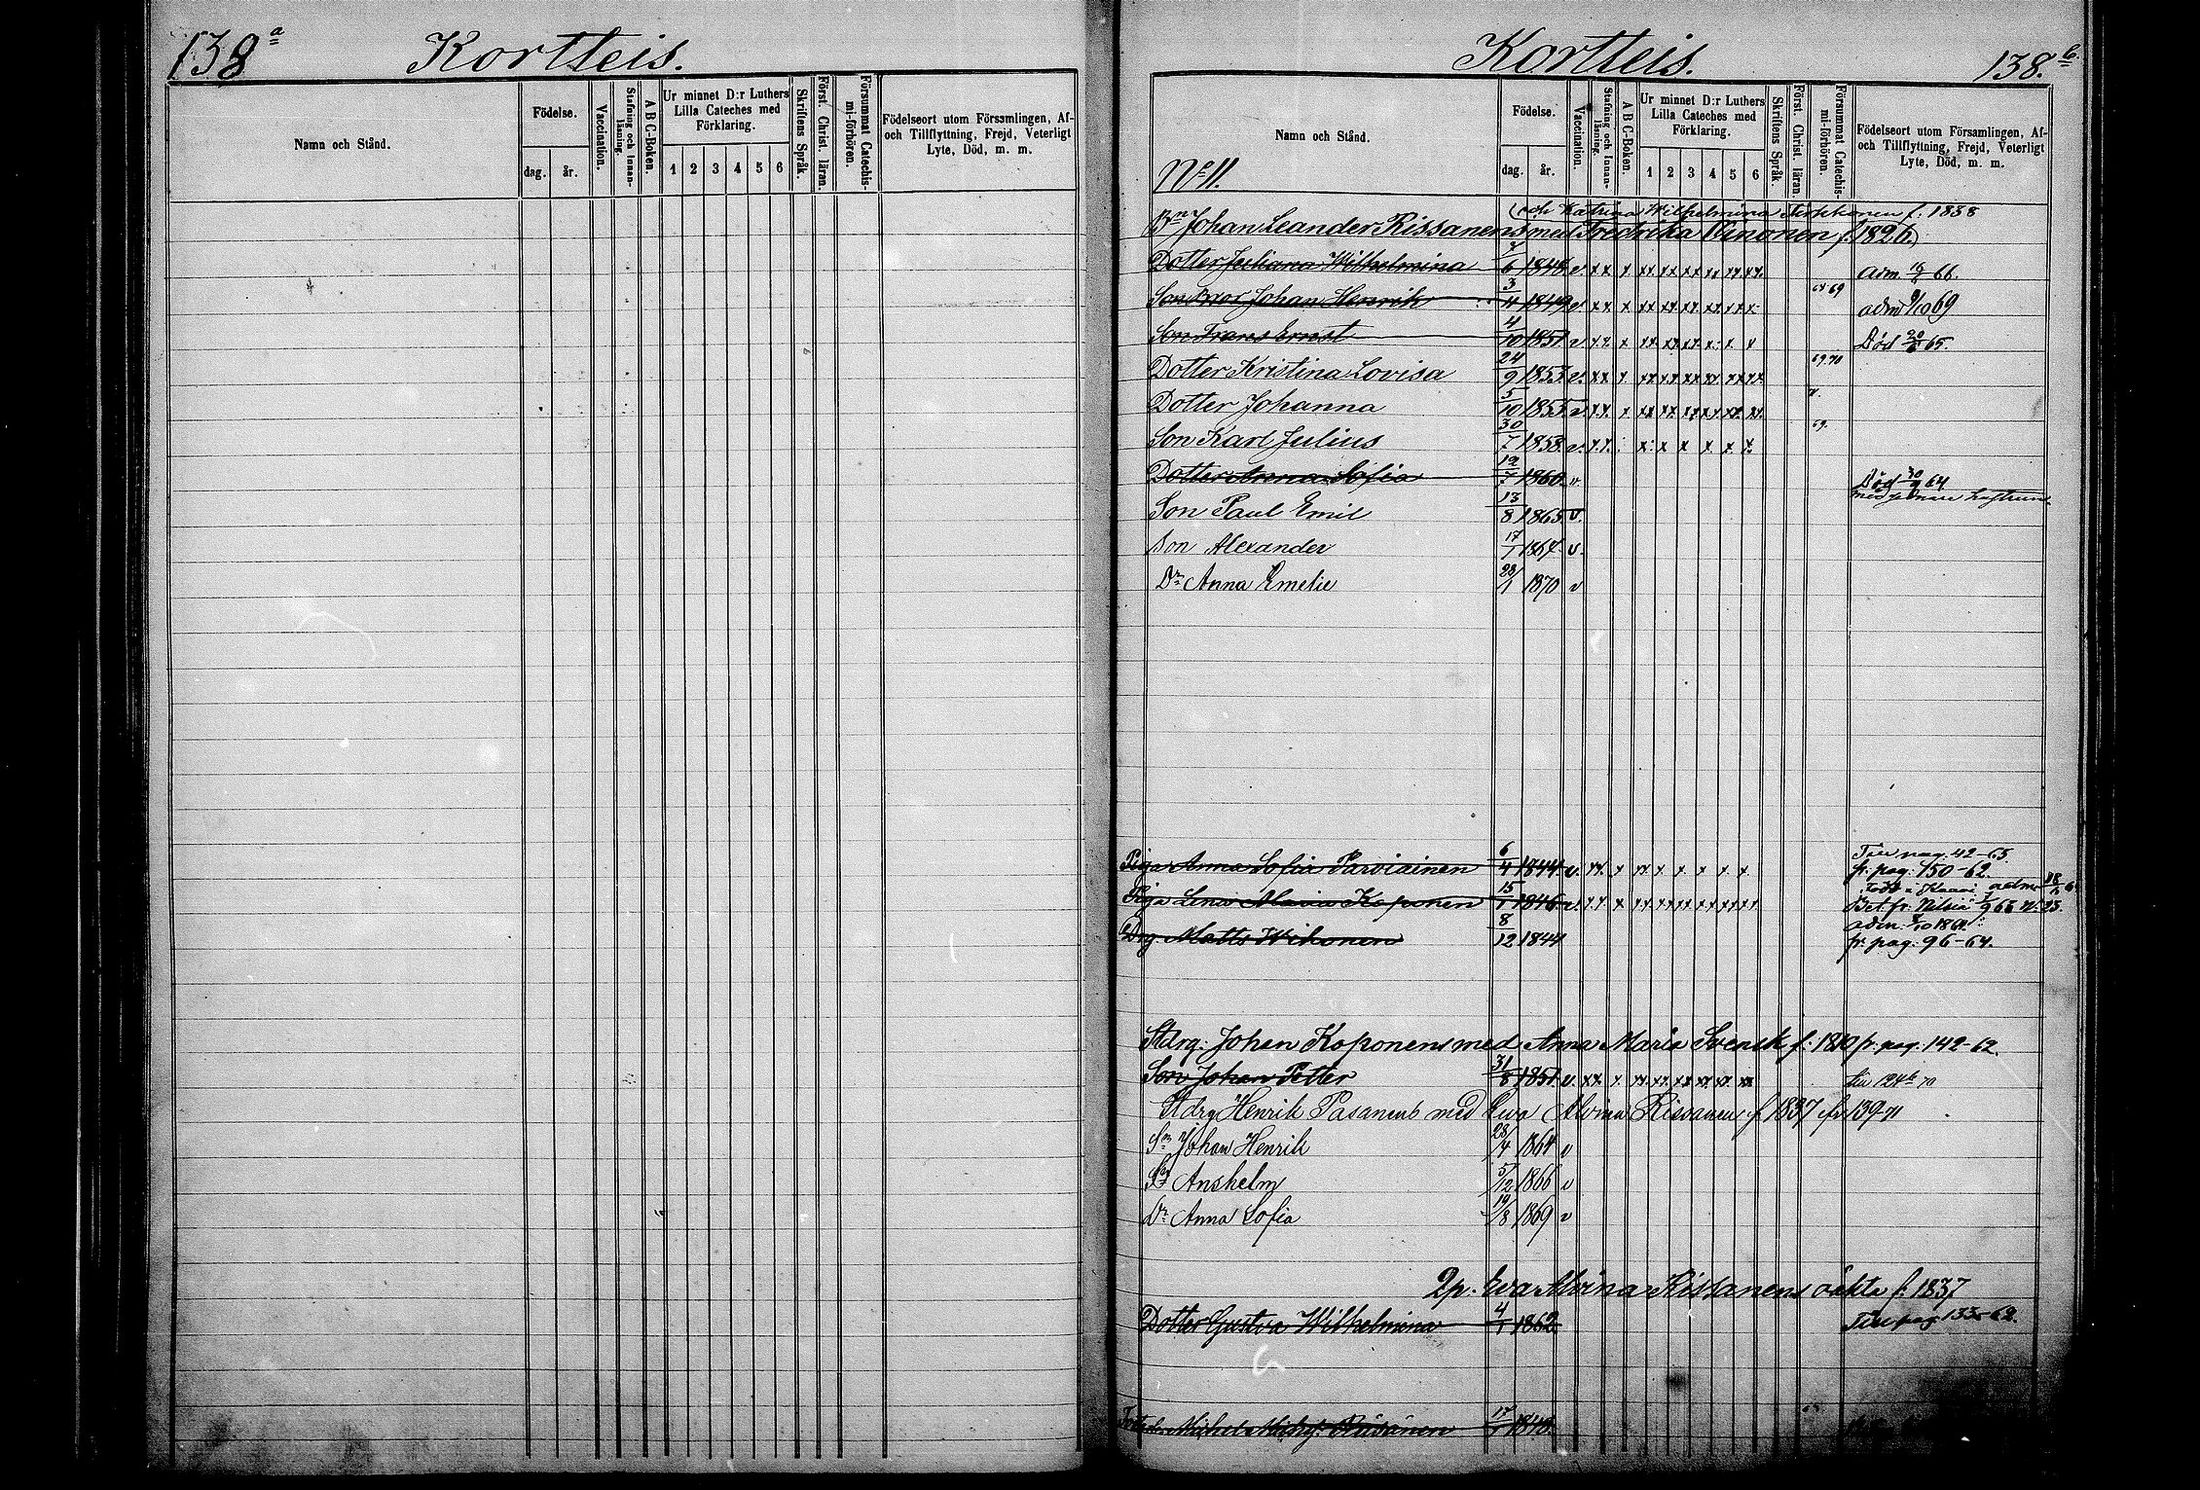 138 a Kortteis.
Namn och Stånd.
Födelse.
dag. år.
Vaccination.
Stafning och Innanläsning.
A B C-Boken.
Ur minnet D:r Luthers Lilla Cateches med Förklaring.
1 2 3 4 5 6
Skriftens Språk.
Först. Christ. läran.
Försummat Catechismi-förhören.
Födelseort utom Församlingen, Af- och Tillflyttning, Frejd, Veterligt Lyte, Död, m. m.
Kortteis. 138. b
Namn och Stånd.
No 11.
Födelse.
dag. år.
Vaccination.
Stafning och Innanläsning.
A B C-Boken.
Ur minnet D:r Luthers Lilla Cateches med Förklaring.
1 2 3 4 5 6
Skriftens Språk.
Först. Christ. läran
Försummat Catechismi-förhören.
Födelseort utom Församlingen, Af- och Tillflyttning, Frejd, Veterligt Lyte, Död, m. m.
(och Katrina Wilhelmina f. 1838
Bn Johan Leander Rissanens med Fredrika Winonen f. 1826)
Dotter Juliana Wilhelmina 7/6 1848 v. xx x xx xx xx xx xx xx adm. 66.
Son Johan Henrik 3/11 1849 v. xx x xx xx xx xx xx x 69 adm 9/10 69
Son Frans Ernst 4/10 1851 v xx x xx xx xx x x x Död 65.
Dotter Kristina Lovisa 24/9 1853 v. xx x xx xx xx xx xx xx 69.70
Dotter Johanna 5/10 1855 v xx x xx xx xx xx xx xx
Son Karl Julius 30/7 1858 v. x x x x x x x x 69.
Dotter Anna Sofia 19/7 1860 v Död 64
Son Paul Emil 13/8 1865 v.
Son Alexander 17/1 1867 v.
Dr Anna Emelie 28/1 1870 v
Piga Anna Sofia Parviainen 6/4 1844 v. xx x xx x x x x x fr. pag. 150-62.
Piga Lena Maria Koponen 15/1 1846 v. xx x xx xx xx xx xx xx Bet. fr. Nilsiä
Drg. Matts Wihonen 8/12 1844 fr. pag. 96-64.
Stdrg. Johan Koponens med Anna Maria Svensk f. 1810 fr. pag. 142-62.
Son Johan Petter 31/8 1851 v. xx x xx xx xx xx xx xx 124 b 70
Stdrg Henrik Pasanens med Eva Alvina Rissanen f 1837 fr 139-71
Sn Johan Henrik 28/4 1864 v
Sn Anshelm 5/12 1866 v
Dr Anna Sofia 19/8 1869 v
Qp. Eva Alvina Rissanens oäkta f. 1837
Dotter Gustva Wilhelmina 4/1 1862 pag 133-62.
Michel Räsänen 17/1